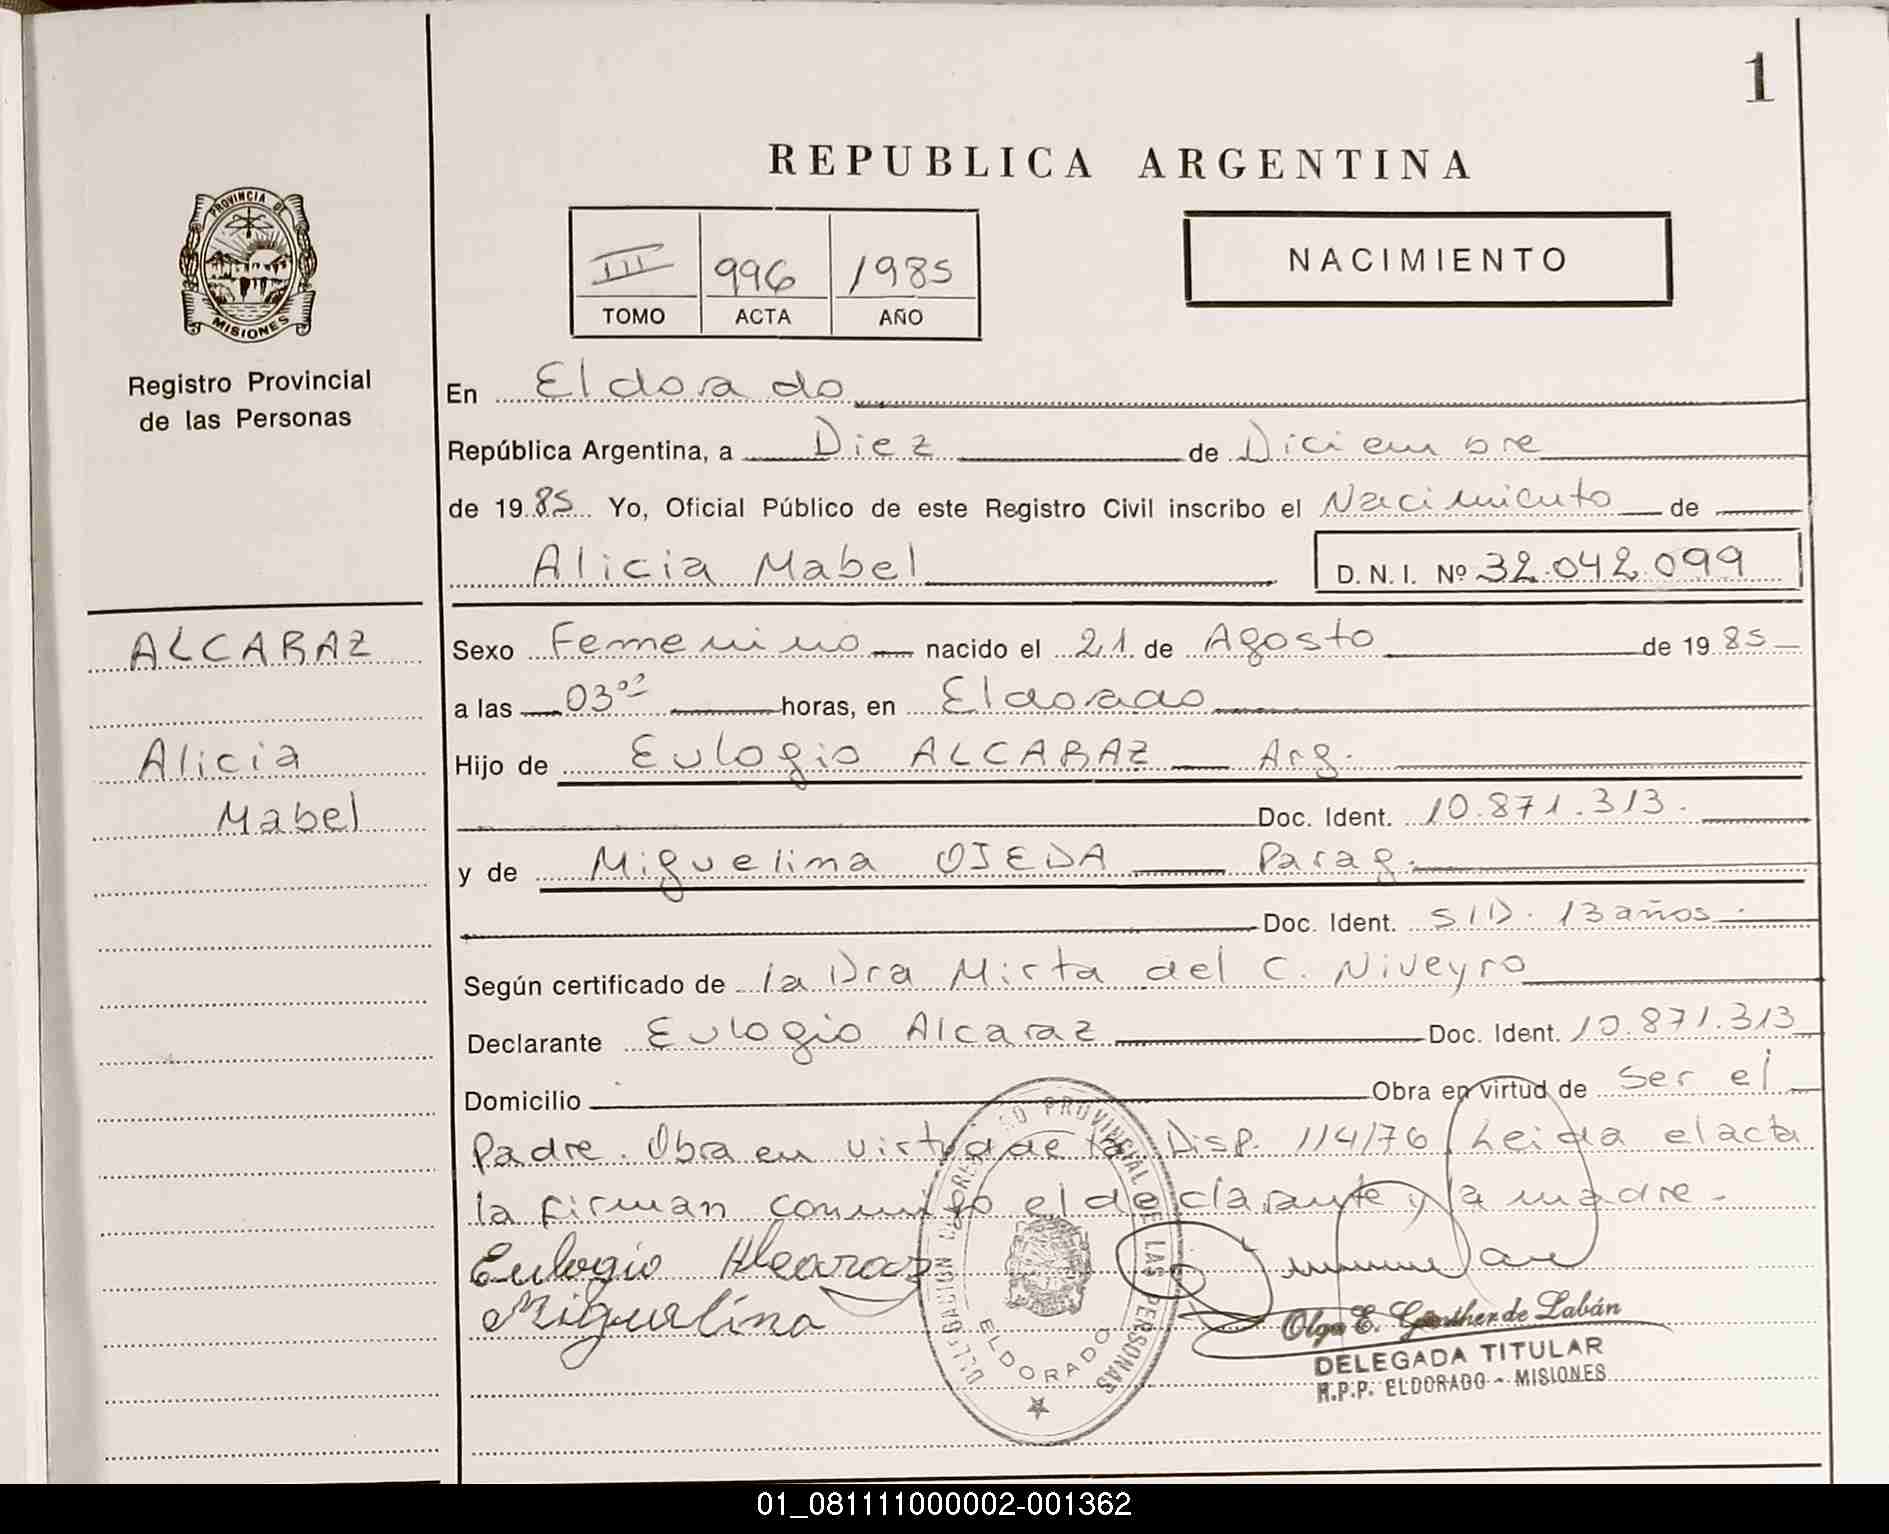 1
REPUBLICA ARGENTINA
PROVINCIA DE
MISIONES
Registro Provincial
de las Personas
III 996 1985
TOMO ACTA AÑO
NACIMIENTO
En Eldorado
República Argentina, a Diez de Diciembre
de 1985 Yo, Oficial Público de este Registro Civil inscribo el Nacimiento de
Alicia Mabel D.N.I. Nº 32.042.099
ALCARAZ
Alicia
Mabel
Sexo Femenino nacido el 21 de Agosto de 1985
a las 03 horas, en Eldorado
Hijo de Eulogio ALCARAZ Arg.
Doc. Ident. 10.871.313.
y de Miguelina OJEDA Parag.
Doc. Ident. S/D. 13 años.
Según certificado de la Dra Mirta del C. Niveyro
Declarante Eulogio Alcaraz Doc. Ident. 10.871.313
Domicilio Obra en virtud de Ser el
Padre. Obra en virtud de la Disp. 114/76 Leida el acta
la firman conmigo el declarante y la madre.
Eulogio Alcaraz
Miguelina
DELEGACION REGISTRO PROVINCIAL DE LAS PERSONAS
ELDORADO
Olga E. Günther de Labán
DELEGADA TITULAR
R.P.P. ELDORADO - MISIONES
01_081111000002-001362